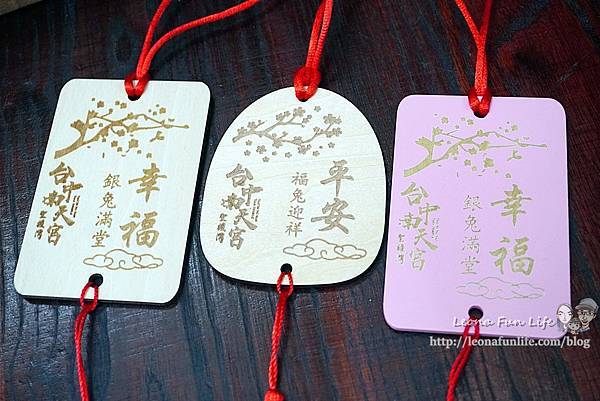 幸福
銀兔滿堂
台中南天宮
聖續灣
平安
福兔迎祥
台中南天宮
幸福
銀兔滿堂
台中南天宮
Leona Fun Life
http://leonafunlife.com/blog